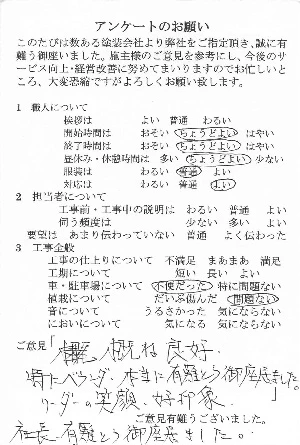 アンケートのお願い
このたびは数ある塗装会社より弊社をご指定頂き、誠に有
難う御座いました。施主様のご意見を参考にし、今後のサ
ービス向上・経営改善に努めてまいりますのでお忙しいと
ころ、大変恐縮ですがよろしくお願い致します。
1 職人について
挨拶は よい 普通 わるい
開始時間は おそい ちょうどよい はやい
終了時間は おそい ちょうどよい はやい
昼休み・休憩時間は 多い ちょうどよい 少ない
服装は わるい 普通 よい
対応は わるい 普通 よい
2 担当者について
工事前・工事中の説明は わるい 普通 よい
伺う頻度は 少ない 多い よい
要望は あまり伝わっていない 普通 よく伝わった
3 工事全般
工事の仕上りについて 不満足 まあまあ 満足
工期について 短い 長い よい
車・駐車場について 不便だった 特に問題ない
植栽について だいぶ傷んだ 問題ない
音について うるさかった 気にならない
においについて 気になる 気にならない
ご意見「 概ね良好.
特にベランダ、本当に有難とう御座居ました。
リーダーの笑顔、好印象。 」
ご意見有難うございました。
社長、有難とう御座居ました。